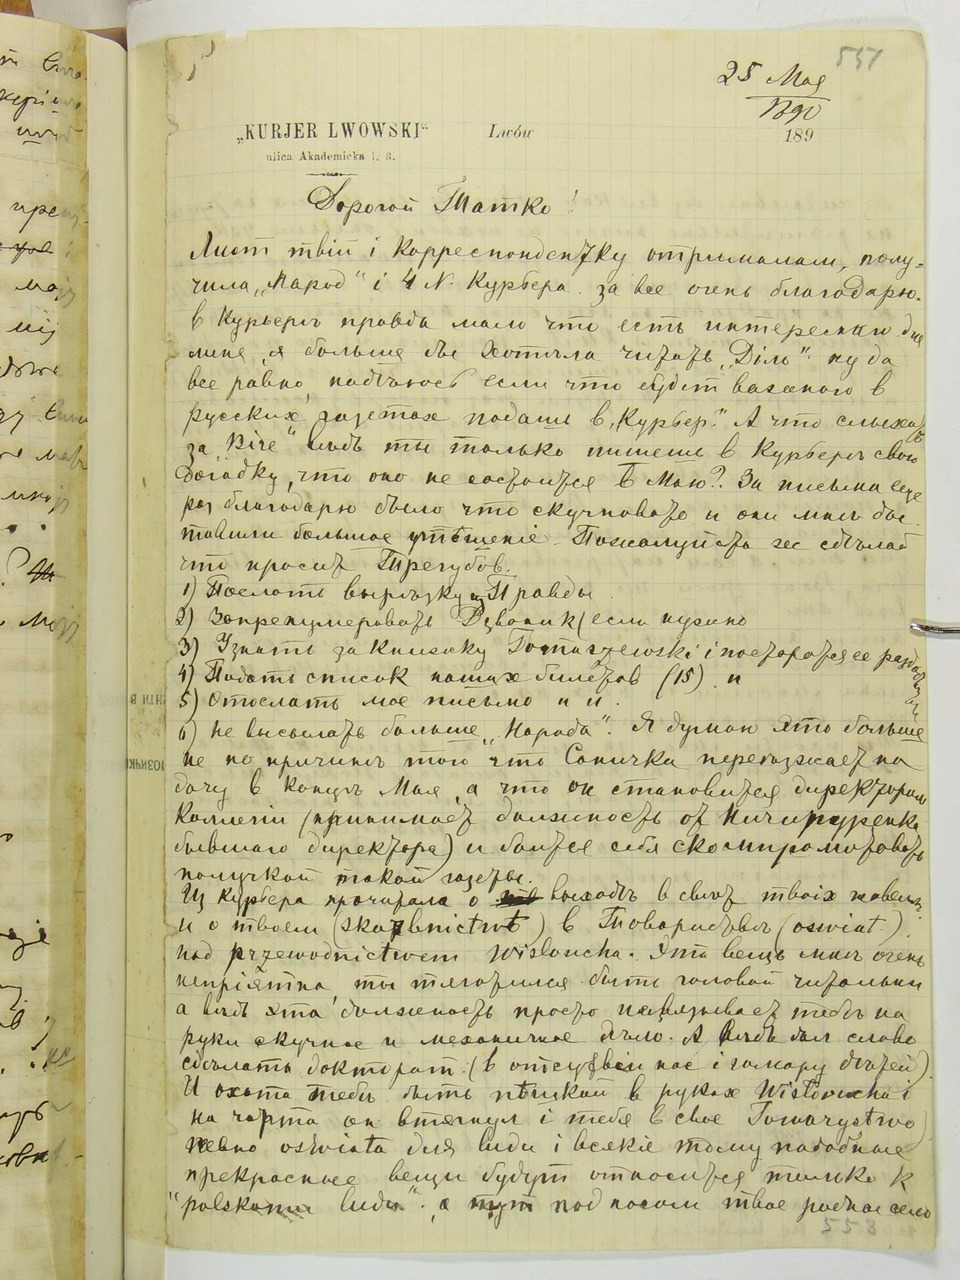 557
25 Мая
1890
„KURJER LWOWSKI“ Lwów 189
ulica Akademicka l. 8.
Дорогой Татко!
Лист твій і Корреспондентку отримала, полу-
чила „Народ“ і 4 N. Курьера. за все очень благодарю.
в Курьерѣ правда мало что есть интереснаго для
меня, я больше бы хотѣла читать „Діло“. ну да
все равно, надѣюсь если что будет важного в
русских газетах подашь в „Курьер“. А что слыхать
за „Віче“ вѣдь ты только пишешь в Курьерѣ свою
догадку, что оно не состоится в Маю? За письма еще
раз благодарю было что скучновато и они мнѣ дос-
тавили большое утѣшеніе. Пожалуйста же сдѣлай
что просит Трегубов.
1) Послать вырѣзку из Правды
2) Запренумеровать Дзвонік (если нужно
3) Узнать за книжку Tomaszewski і постараться ее раздобыть
4) Подать список наших билетов (15). и
5) Отослать мое письмо и и.
6) Не высылать больше „Народа“. Я думаю это больше
не по причинѣ того что Саничка переѣзжает на
дачу в концѣ Мая, а что он становится директором
Коллегіи (принимает должность от Ничипуренка
бывшаго директора) и боится себя скомпромотовать
получкой такой газеты.
Из Курьера прочитала о выходѣ в свѣт твоіх новель,
и о твоем (skarbnictwѣ) в Товариствѣ (oswiat).
pod przewodnictwem Wisloucha. Эта вещь мнѣ очень
непріятна, ты тяготился быть головой читальни
а вѣдь эта должность просто навязывает тебѣ на
руки скучное и механичное дѣло. А вѣдь дал слово
сдѣлать докторат. (в отсутвіи нас і гамару дѣтей).
И охота тебѣ быть пѣшкой в руках Wisloucha і
на чорта он втянул и тебя в свое Towarzystwo)
певно oświata для luду і всякіе тому подобные
прекрасные вещи будут относиться только к
“polskomu ludu”, а тут под носом твое родное село
558